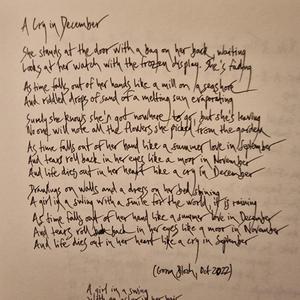 A Cry in December
She stands at the door with a bag on her back, waiting
Looks at her watch with the frozen display. She's fading
As time falls out of her hands like a mill on a seashore
And riddled drops of sand of a melting sun evaporating
Surely she knows she's got nowhere to go, but she's leaving
No one will note all the flowers she picked from the garden
As time falls out of her hand like a summer love in September
And tears roll back in her eyes like a moor in November
And life dies out in her heart like a cry in December
Drawings on walls and a dress on her bed, shining
A girl in a swing with a smile for the world, it is raining
As time falls out of her hand like a summer love in December
And tears roll back in her eyes like a moor in November
And life dies out in her heart like a cry in September
(Bloch, Oct 2022)
A girl in a swing
in her hair